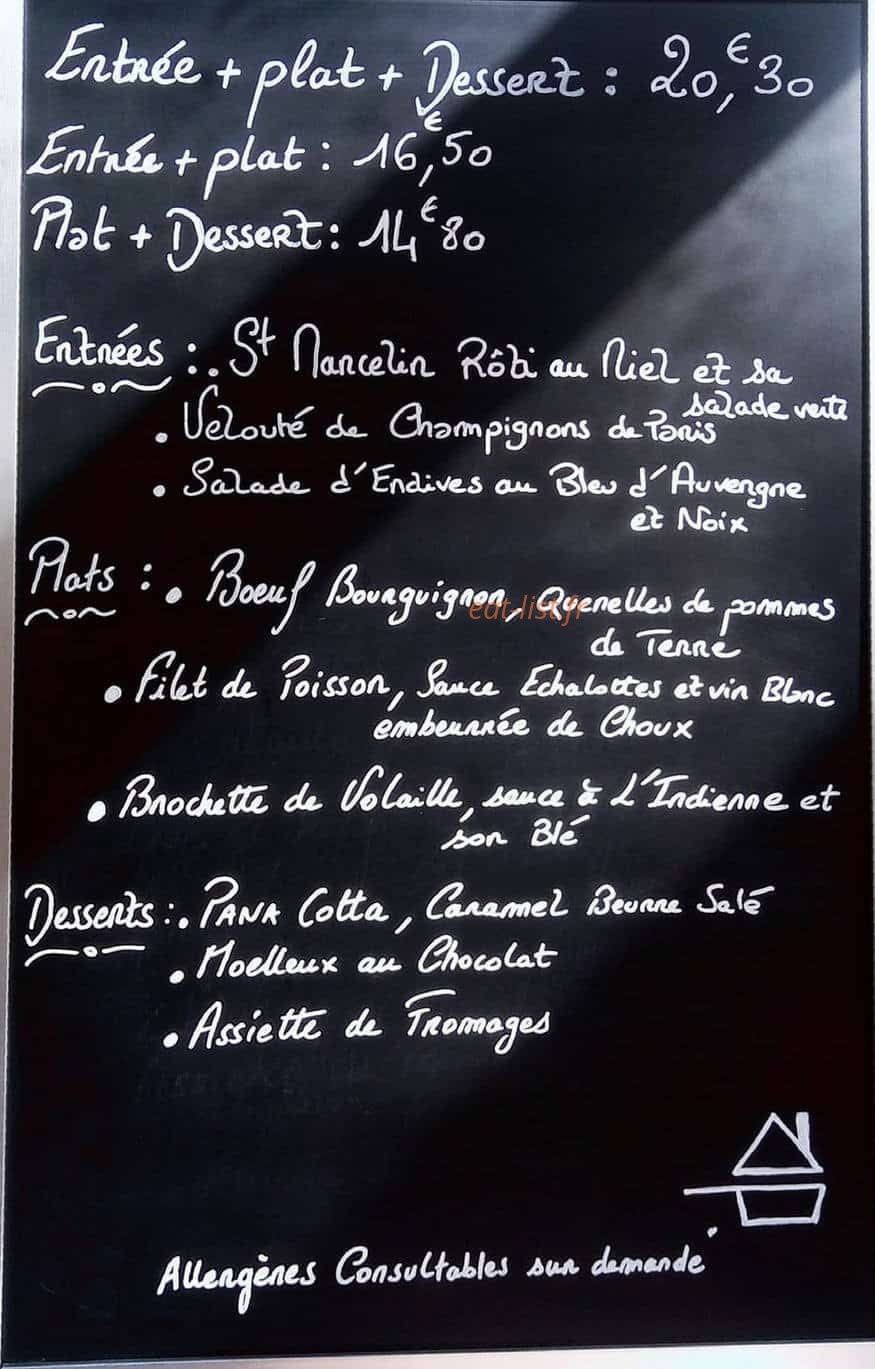 Entrée + plat + Dessert : 20,€30
Entrée + plat : 16,€50
Plat + Dessert : 14€80
Entrées : . St Marcelin Rôti au Miel et sa
salade verte
• Velouté de Champignons de Paris
• Salade d'Endives au Bleu d'Auvergne
et Noix
Plats : • Boeuf Bourguignon, Quenelles de pommes
de Terre
eat-list.fr
• Filet de Poisson, Sauce Echalottes et vin Blanc
embeurrée de Choux
• Brochette de Volaille, sauce à L'Indienne et
son Blé
Desserts : . PANA Cotta, Caramel Beurre Salé
• Moelleux au Chocolat
• Assiette de Fromages
Allergènes Consultables sur demande